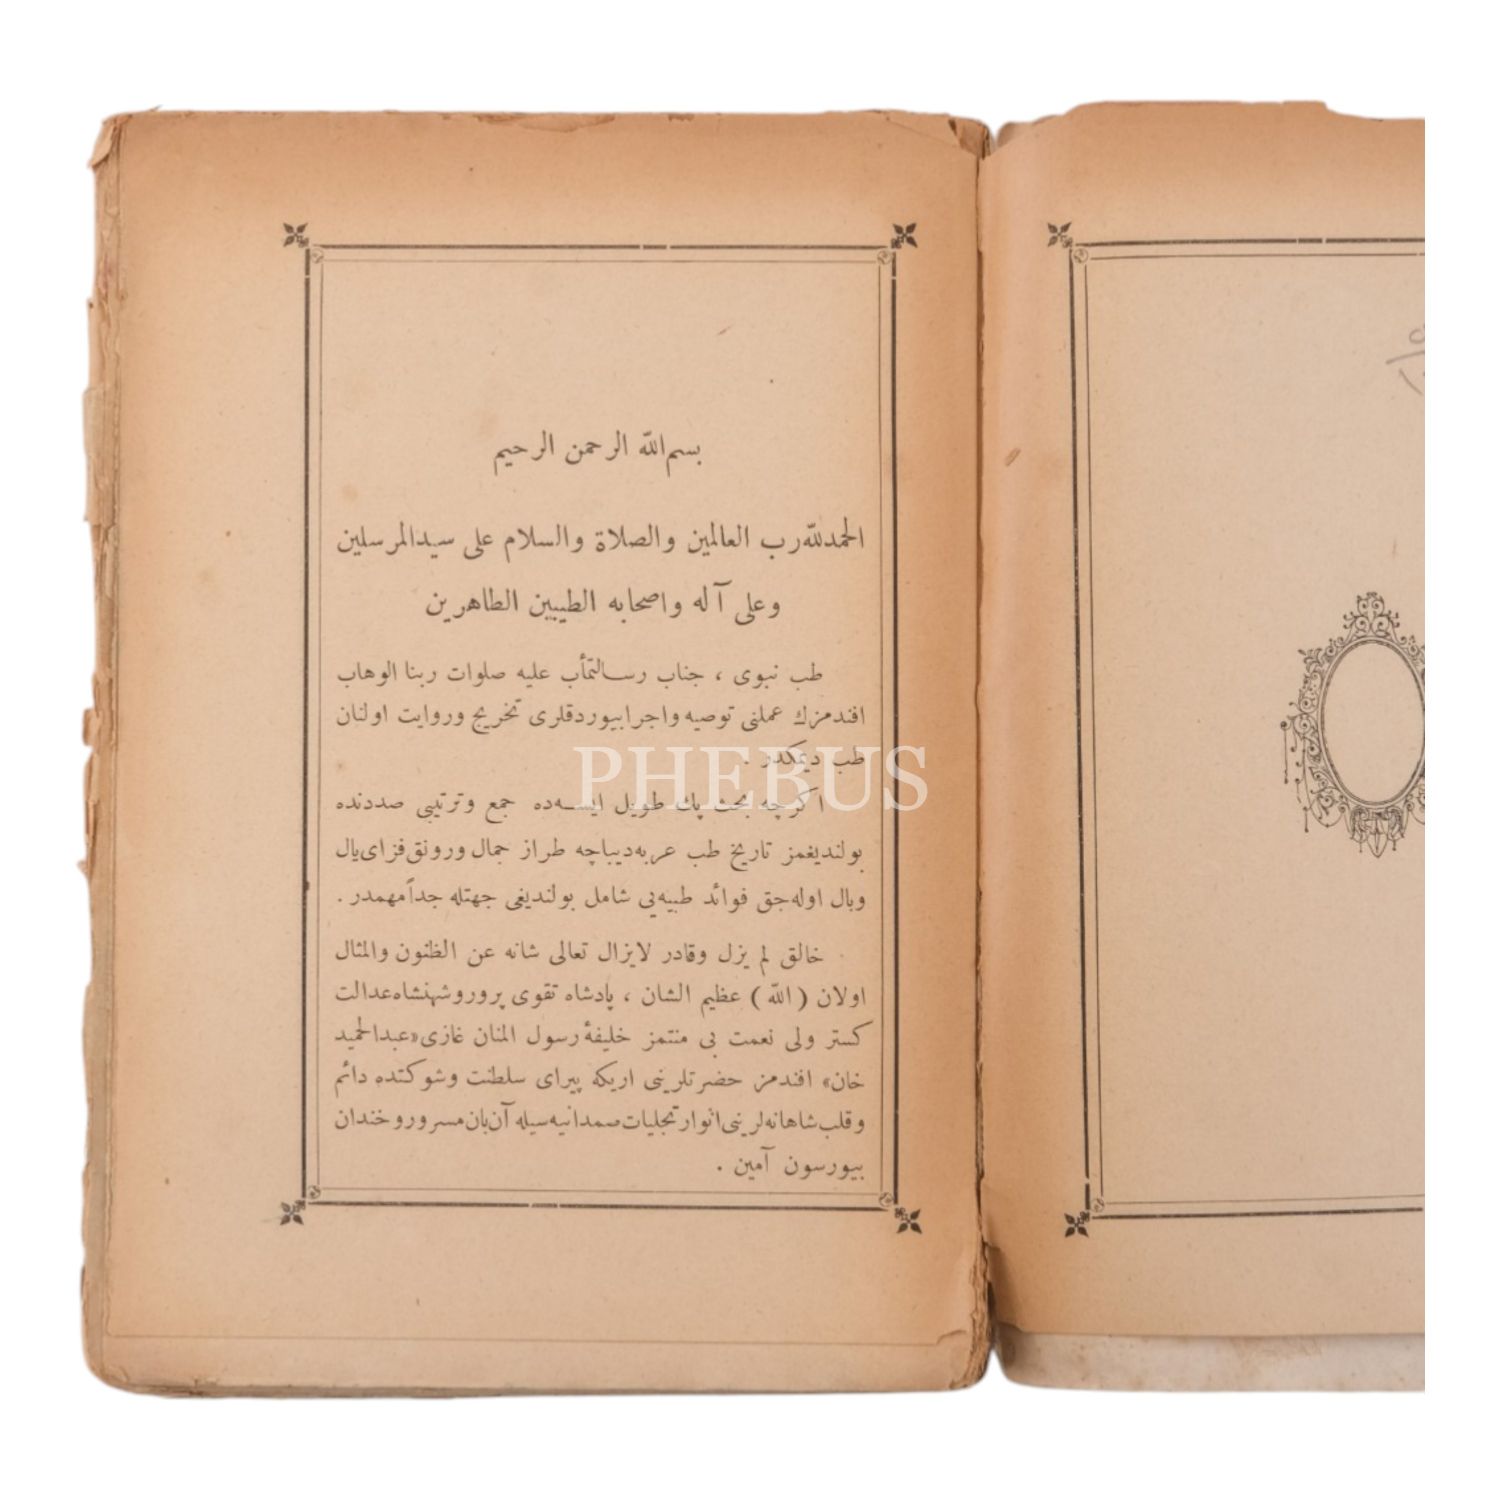 بسم الله الرحمن الرحيم
الحمدلله رب العالمين والصلاة والسلام على سيدالمرسلين
وعلى آله واصحابه الطيبين الطاهرين
طب نبوى ، جناب رسالتمأب عليه صلوات ربنا الوهاب
افندمزك عملنى توصيه واجرا بيوردقلرى تخريج وروايت اولنان
طب ديمكدر .
اكرچه بحث پك طويل ايسه‌ده جمع وترتيبى صددنده
بولنديغمز تاريخ طب عربه ديباچه طراز جمال ورونق‌فزاى يال
وبال اوله‌جق فوائد طبيه‌يى شامل بولنديغى جهتله جداً مهمدر .
خالق لم يزل وقادر لايزال تعالى شانه عن الظنون والمثال
اولان ( الله ) عظيم الشان ، پادشاه تقوى پرور وشهنشاه عدالت
كستر ولى نعمت بى منتمز خليفۀ رسول المنان غازى «عبدالحميد
خان» افندمز حضرتلرينى اريكه پيراى سلطنت وشوكتده دائم
وقلب شاهانه‌لرينى انوار تجليات صمدانيه سيله آن بان مسرور وخندان
بيورسون آمين .
PHEBUS